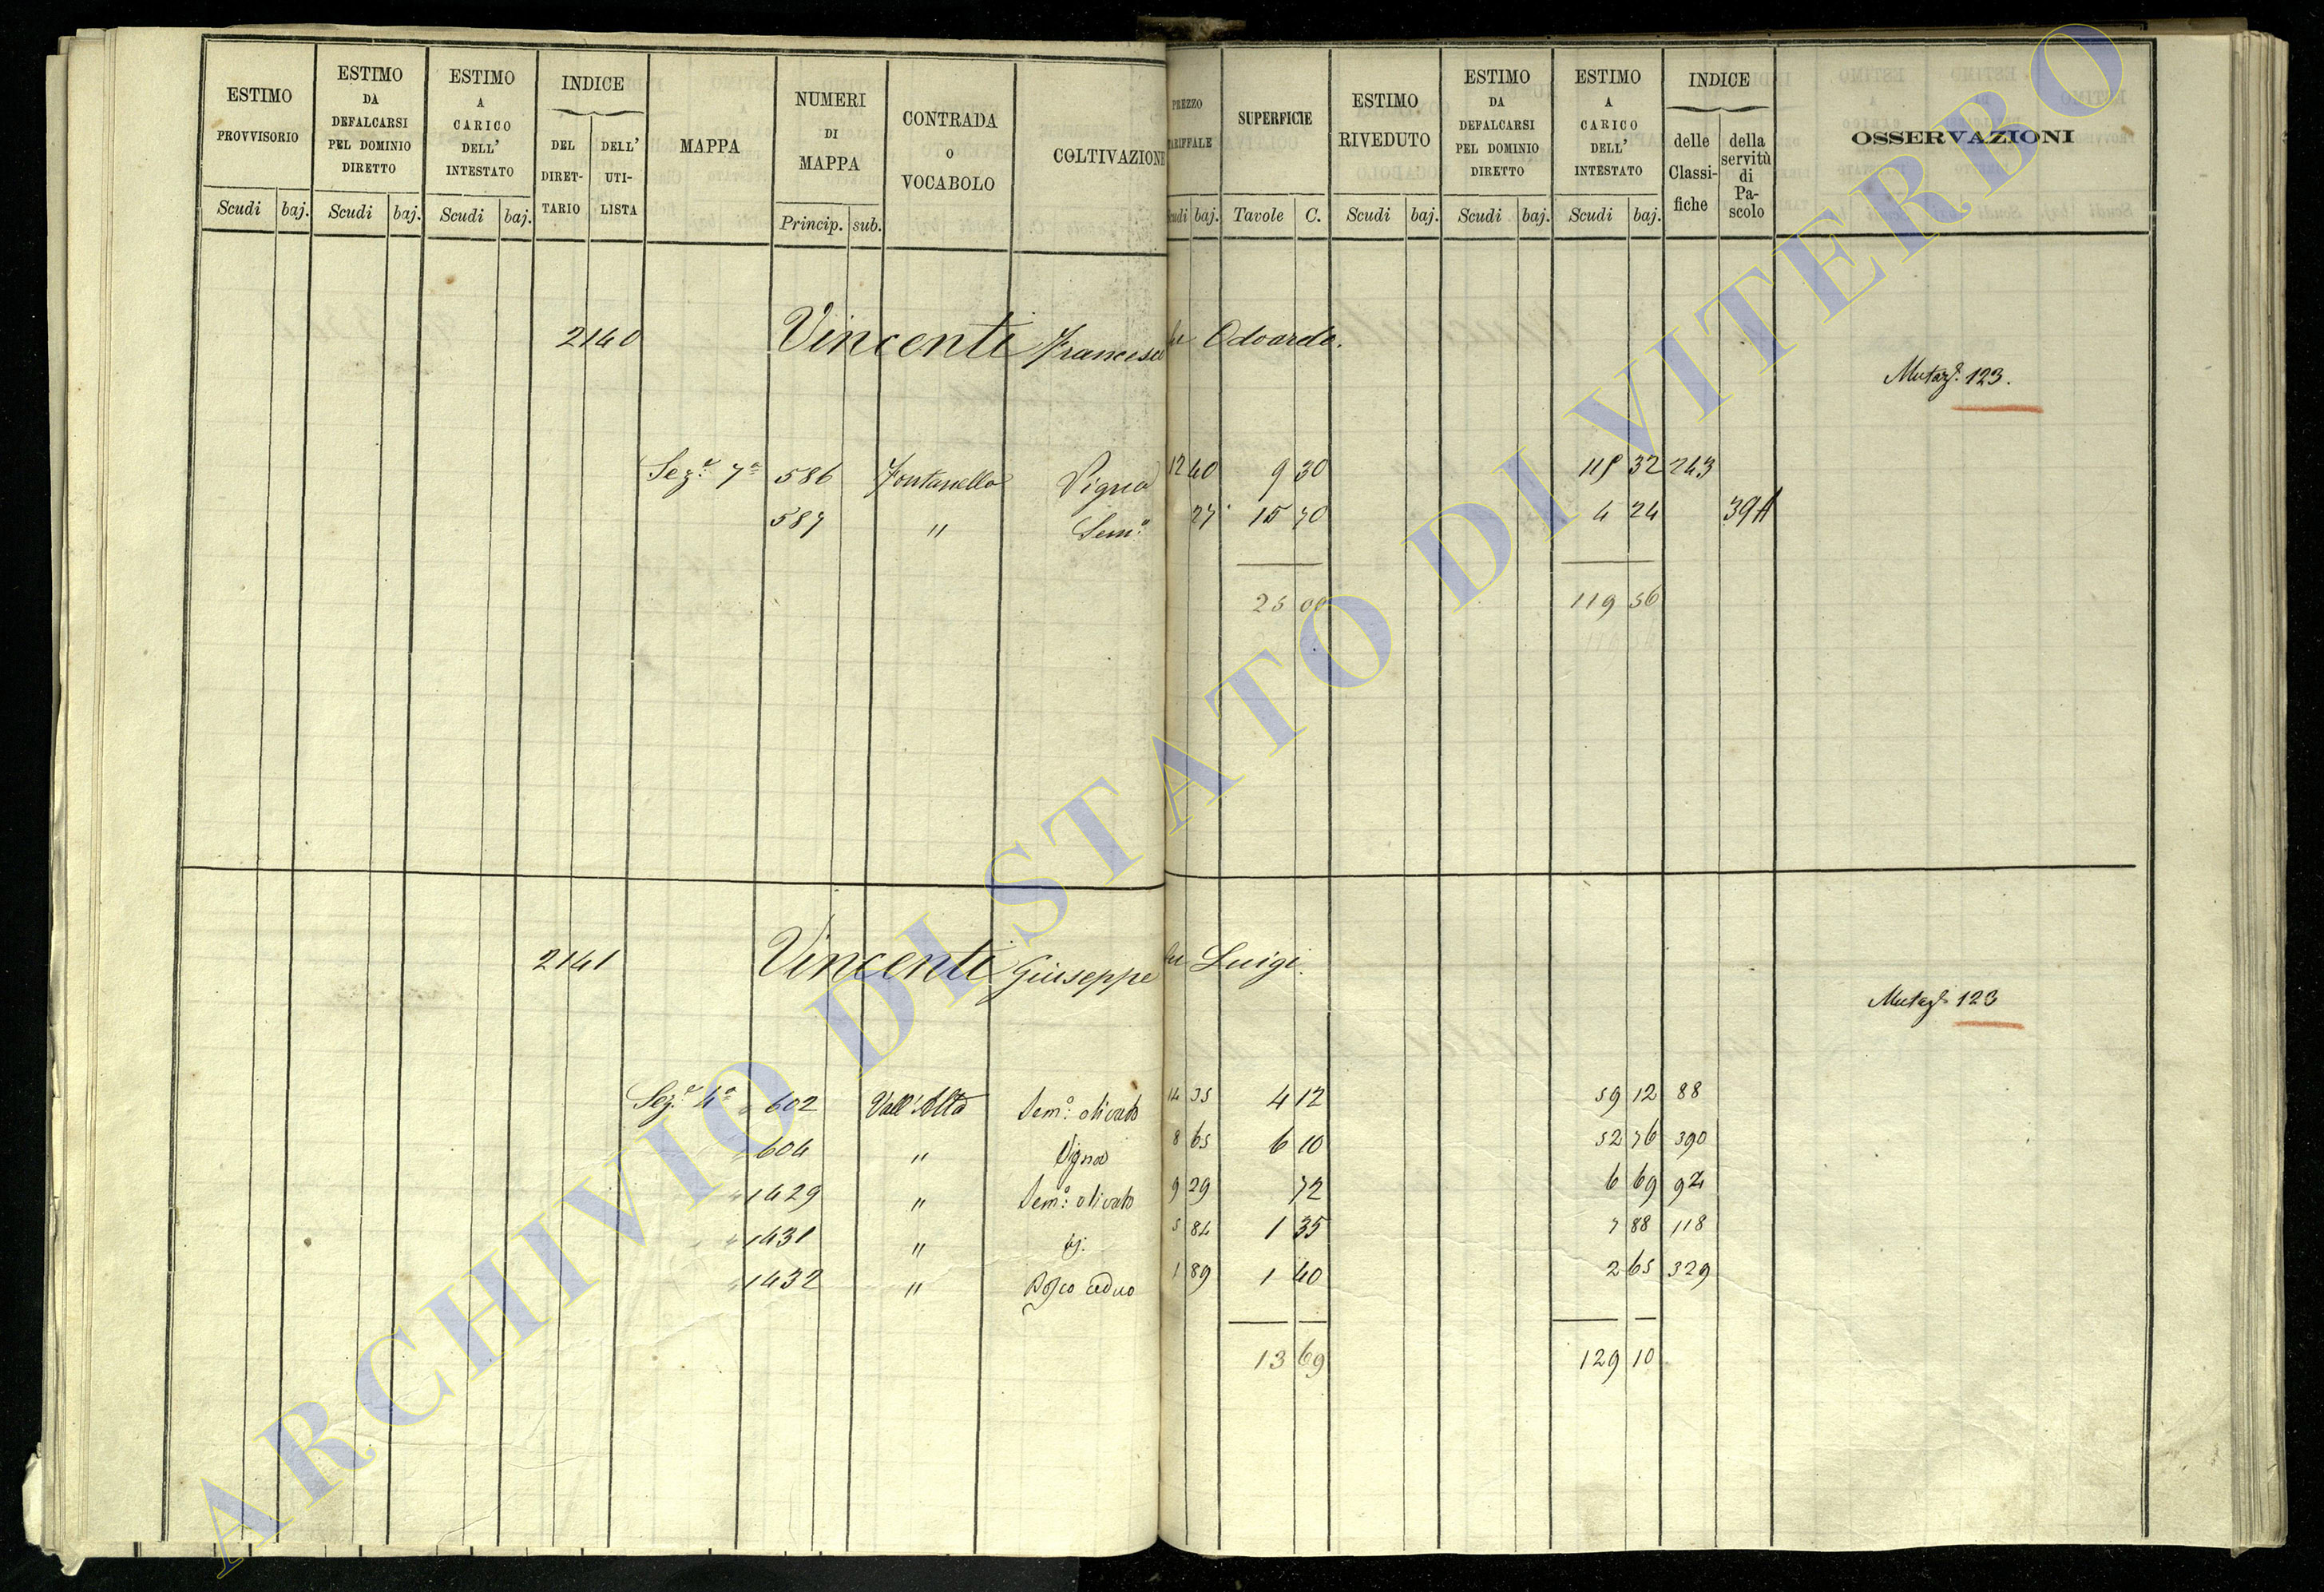 ESTIMO PROVVISORIO Scudi baj. | ESTIMO DA DEFALCARSI PEL DOMINIO DIRETTO Scudi baj. | ESTIMO A CARICO DELL' INTESTATO Scudi baj. | INDICE DEL DIRET- TARIO | DELL' UTI- LISTA | MAPPA | NUMERI DI MAPPA Princip. sub. | CONTRADA O VOCABOLO | COLTIVAZIONE | PREZZO TARIFFALE baj. | SUPERFICIE Tavole C. | ESTIMO RIVEDUTO Scudi baj. | ESTIMO DA DEFALCARSI PEL DOMINIO DIRETTO Scudi baj. | ESTIMO A CARICO DELL' INTESTATO Scudi baj. | INDICE delle Classi- fiche | della servitù di Pa- scolo | OSSERVAZIONI
2140 Vincenti Francesco fu Odoardo.
Mutaz.e 123.
Sez.e 7a 586 Fontanella Vigna 12 40 9 30 115 32 243
587 " Sem.o 27 15 70 4 24 39A
25 00 119 56
2141 Vincenti Giuseppe fu Luigi.
Mutaz.e 123
Sez.e 4a 602 Vall'Alta Sem.o olivato 14 35 4 12 59 12 88
604 " Vigna 8 65 6 10 52 76 390
1429 " Sem.o olivato 9 29 72 6 69 92
1431 " id. 5 84 1 35 7 88 118
1432 " Bosco ceduo 1 89 1 40 2 65 329
13 69 129 10
ARCHIVIO DI STATO DI VITERBO